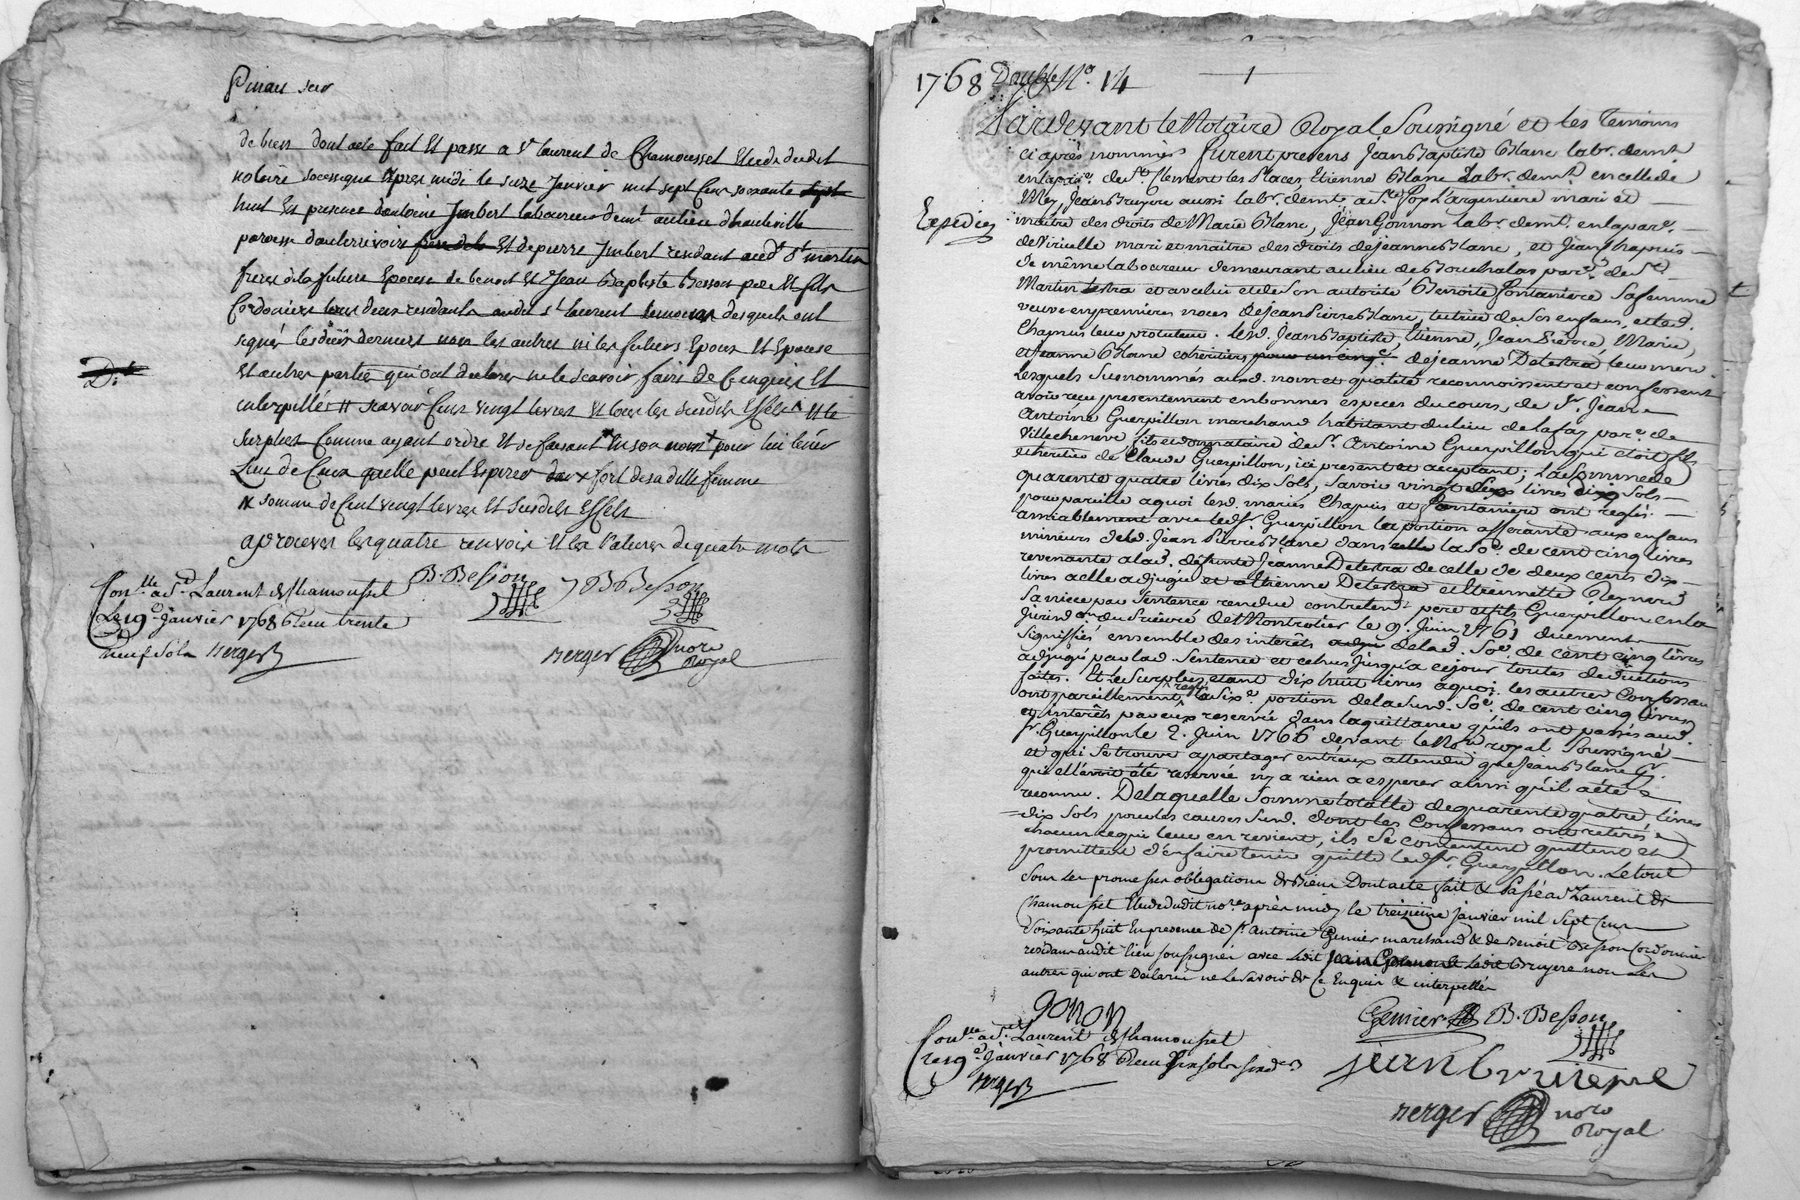 de biens dont acte fait et passé a St laurent de Chamousset Etude dudit
notaire apres midi le seize Janvier mil sept Cens soixante sept
huit En presence d'antoine Imbert laboureur demt au lieu d'hauteville
paroisse d'auberivoire frere de la Et de pierre Imbert residant aud. St martin
freres de la future Epouse de benoit Et Jean Baptiste Besson pere Et fils
Cordoniers tous deux residants audit St laurent desquels ont
signé les deux derniers non les autres ni les futurs Epoux Et Epouse
Et autres parties qui ont declarer ne le scavoir faire de Ce enquis Et
interpellés scavoir Cent vingt livres Et tous les susdits Effets Et le
Surplus Comme ayant ordre Et se faisant en son nom pour lui tenir
Lieu de Ceux quelle peut Esperer fort de sa ditte femme
x somme de Cent vingt livres Et susdits Effets
aprouver les quatre renvois Et les ratures de quatre mots
B. Besson JB Besson
Conlle a St. Laurent de Chamousset
Le 19e Janvier 1768 Reçu trente
neuf Sols Berger
Berger noro
Royal
1768 Double No. 14
1
Pardevant le Notaire Royal Soussigné et les Temoins
ci après nommés furent presens Jean Baptiste Blanc labr. demt.
en la par. de St. Clement les Places, Etienne Blanc Labr. demt. en celle de
Mey, Jean Bruyere aussi labr. demt. a Ste. Foy L'argentiere mari et
Expedié
maitre des droits de Marie Blanc, Jean Gonnon labr. demt. en la par.
de Viricelle mari et maitre des droits de Jeanne Blanc, et Jean Chapuis
de même laboureur demeurant au lieu de Bouchalas par. de St.
Martin lestra et avec lui et de Son autorité Benoite Fontaniere Sa femme
veuve en premieres noces de Jean Pierre Blanc, tutrice de Ses enfans, et led.
Chapuis leur protuteur. lesd. Jean Baptiste, Etienne, Jean Pierre, Marie,
et Jeanne Blanc coheritiers pour un cinqe. de Jeanne Delestra leur mere.
Lesquels Susnommés aud. nom et qualité reconnoissent et confessent
avoir reçu presentement en bonnes especes du cours, de Sr. Jean
Antoine Guerpillon marchand habitant du lieu de Lafay par. de
Villecheneve fils et donnataire de Sr. Antoine Guerpillon qui etoit fils
et heritier de Claude Guerpillon, ici present et acceptant; La Somme de
quarente quatre livres dix Sols, Savoir vingt Six livres dix Sols
pour pareille a quoi lesd. mariés Chapuis et Fontaniere ont reglés
amiablement avec led. Sr. Guerpillon la portion afferante aux enfans
mineurs dud. Jean Pierre Blanc dans celle la Soe. de cent cinq livres
revenante a lad. défunte Jeanne Delestra de celle de deux cents dix
livres a elle adjugée et a Etienne Delestra et Etiennette Reynard
Sa niece par Sentence rendue contre lesd. pere et fils Guerpillon en la
Juridon. du Prieuré de Montrotier le 9. Juin 1761 duement
Signiffiée, ensemble des interêts de lad. Soe. de cent cinq livres
adjugés par lad. Sentence et echus jusqu'a ce jour toutes deductions
faites. Et le Surplus etant dix huit livres a quoi les autres Confessans
ont pareillement reglés la Sixe. portion de la Susd. Soe. de cent cinq livres
et interêts par eux reservée dans la quittance qu'ils ont passés aud.
Sr. Guerpillon le 2. Juin 1766 devant le Nore. royal Soussigné
et qui Se trouve a partager entr'eux attendu que Jean Blanc
qui elle avoit été reservée n'y a rien a esperer ainsi qu'il a été
reconnu. De laquelle Somme totalle de quarente quatre livres
dix Sols pour les causes Susd. dont les Confessans ont retirés
chacun ce qui leur en revient, ils Se contentent quittent et
promettent d'en faire tenir quitte led. Sr. Guerpillon. Le tout
Sous les promesses obligations de Biens Dont acte fait & Passé a St Laurent de
Chamousset Etude dudit nore. après midy le treizieme Janvier mil Sept Cens
Soixante huit En presence de Sr. Antoine Genier marchand & de Benoit Besson Cordonier
residans audit lieu Soussignés avec ledit Jean Gonnon & Ledit Bruyere non Les
autres qui ont Declaré ne le Savoir de Ce Enquis & interpellés
gonon Genier B. Besson
Conlle a St. Laurent de Chamousset
Le 19e Janvier 1768 Reçu
Berger
jean bruiere
Berger noro
Royal